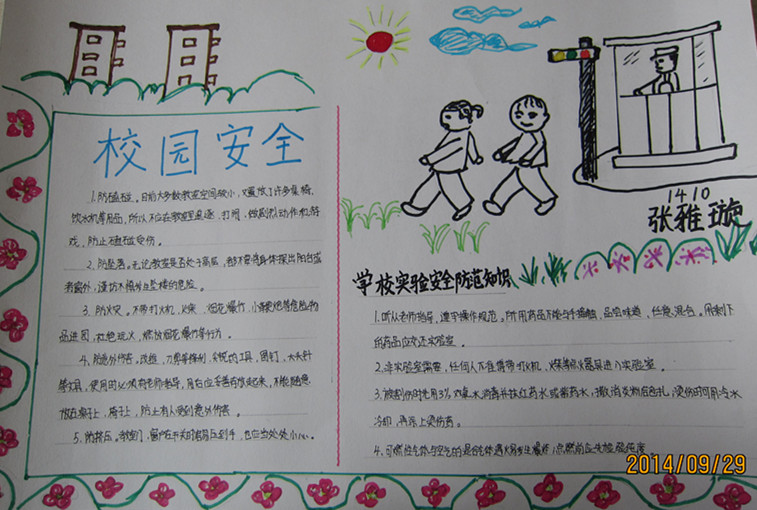 校园安全
1.防磕碰。目前大多数教室空间较小,又置放了许多桌椅、
饮水机等用品,所以不应在教室里追逐、打闹,做剧烈动作和游
戏,防止磕碰受伤。
2.防坠落。无论教室是否处于高层,都不要将身体探出阳台或
者窗外,谨防不慎发生坠楼的危险。
3、防火灾。不带打火机、火柴、烟花爆竹、小
品进园,杜绝玩火、燃放烟花爆竹等行为。
4、防意外伤害。改锥、刀剪等锋利、尖锐的工具,图钉、大头针
等文具,使用时必须有老师指导,用后应妥善存放起来,不能随意
放在桌子上、椅子上,防止有人受到意外伤害。
5、防挤压。
1410
张雅璇
学校实验安全防范知识
1.听从老师指导,遵守操作规范。所用药品不能与手接触、品尝味道、任意混合。用剩下
的药品应交还实验室。
2、非实验室需要,任何人不准携带打火机、火柴等点火器具进入实验室。
3、被割伤时先用3%双氧水消毒并抹红药水或紫药水,撒消炎粉后包扎。烫伤时可用冷水
冷却,再涂上烫伤膏。
4、可燃性气体与空气的混合气体遇火易发生爆炸,点燃前应先检验纯度
2014/09/29